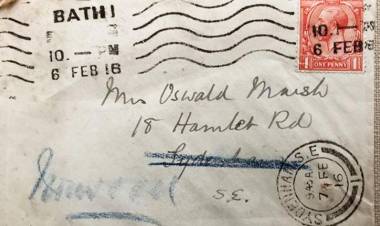 BATH 1
10. — PM
6 FEB 16
10. —
6 FEB
ONE PENNY
Mrs Oswald Marsh
18 Hamlet Rd
S.E.
SYDENHAM S.E.
7 FE
16